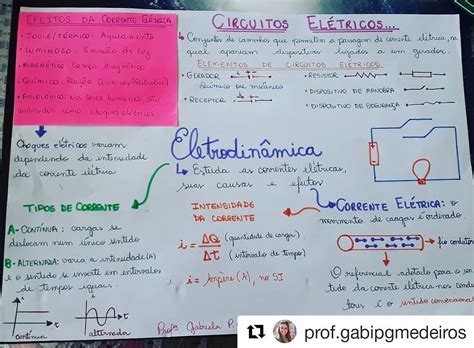 EFEITOS DA CORRENTE ELÉTRICA
• JOULE/TÉRMICO: Aquecimento
• LUMINOSO: Emissão de luz
• MAGNÉTICO: Campo magnético
• QUÍMICO: Reações Químicas
• FISIOLÓGICO: Nos seres humanos são
conhecidos como choques elétricos.
Choques elétricos variam
dependendo da intensidade
da corrente elétrica
CIRCUITOS ELÉTRICOS...
Conjuntos de caminhos que permitem a passagem de corrente elétrica, no
qual aparecem dispositivos ligados a um gerador.
ELEMENTOS DE CIRCUITOS ELÉTRICOS:
• GERADOR
Químico ou mecânico
• RECEPTOR
• RESISTOR
• DISPOSITIVO DE MANOBRA
• DISPOSITIVO DE SEGURANÇA
Eletrodinâmica
Estuda as correntes elétricas,
suas causas e efeitos
TIPOS DE CORRENTE
A- CONTÍNUA: cargas se
deslocam num único sentido
B- ALTERNADA: varia a intensidade (A)
e o sentido se inverte em intervalos
de tempos iguais.
i
t
contínua
i
t
alternada
INTENSIDADE
DA CORRENTE
i = ΔQ (quantidade de cargas)
Δt (intervalo de tempo)
i = Ampère (A), no SI
Profª Gabriela P.
CORRENTE ELÉTRICA: o
movimento de cargas é ordenado
fio condutor
O referencial adotado para o sen
tido da corrente elétrica nos condu
tores é o sentido convencional
prof.gabipgmedeiros